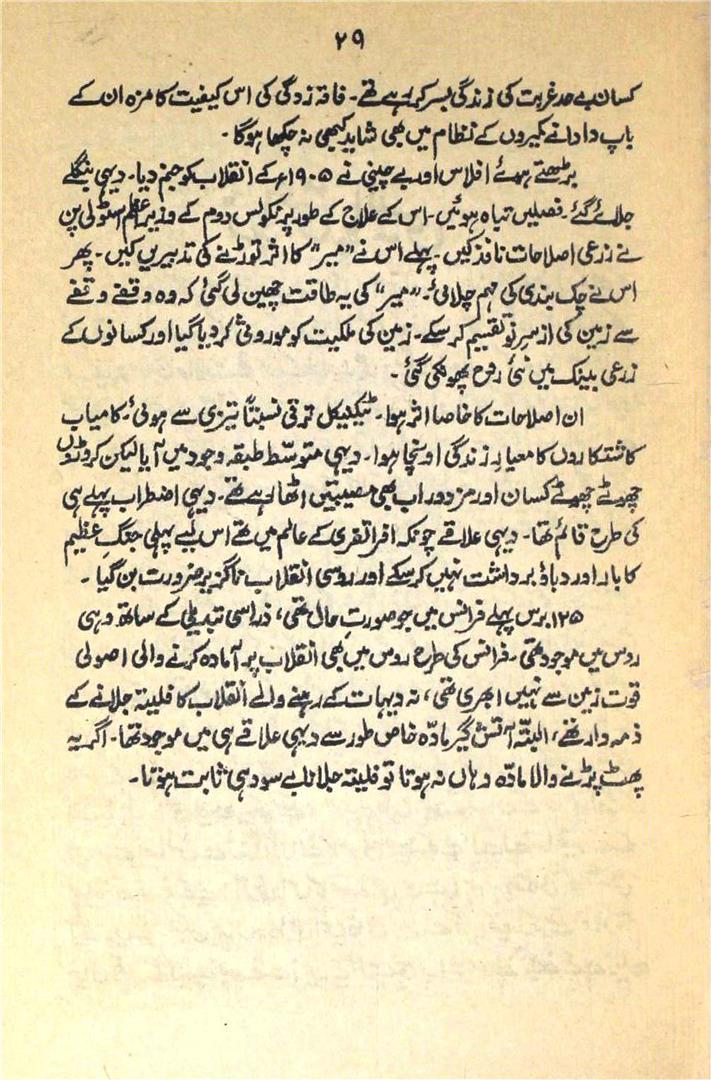 ۲۹
کسان بے حد غربت کی زندگی بسر کر رہے تھے۔ فاقہ زدگی کی اس کیفیت کا مزہ ان کے
باپ دادا نے کمیروں کے نظام میں بھی شاید کبھی نہ چکھا ہوگا۔
بڑھتے ہوئے افلاس اور بے چینی نے ۱۹۰۵ء کے انقلاب کو جنم دیا۔ دیہی بنگلے
جلائے گئے۔ فصلیں تباہ ہوئیں۔ اس کے علاج کے طور پر نکولس دوم کے وزیر اعظم سٹولی پن
نے زرعی اصلاحات نافذ کیں۔ پہلے اس نے "میر" کا اثر توڑنے کی تدبیریں کیں۔ پھر
اس نے چک بندی کی مہم چلائی۔ "میر" کی یہ طاقت چھین لی گئی کہ وہ وقفے وقفے
سے زمین کی از سرِ نو تقسیم کر سکے۔ زمین کی ملکیت کو موروثی کر دیا گیا اور کسانوں کے
زرعی بینک میں نئی روح پھونکی گئی۔
ان اصلاحات کا خاصا اثر ہوا۔ ٹیکنیکل ترقی نسبتاً تیزی سے ہوئی۔ کامیاب
کاشتکاروں کا معیارِ زندگی اونچا ہوا۔ دیہی متوسّط طبقہ وجود میں آیا لیکن کروڑوں
چھوٹے چھوٹے کسان اور مزدور اب بھی مصیبتیں اٹھا رہے تھے۔ دیہی اضطراب پہلے ہی
کی طرح قائم تھا۔ دیہی علاقے چونکہ افراتفری کے عالم میں تھے اس لیے پہلی جنگِ عظیم
کا بار اور دباؤ برداشت نہیں کر سکے اور روسی انقلاب ناگزیر ضرورت بن گیا۔
۱۲۵ برس پہلے فرانس میں جو صورتِ حال تھی، ذرا سی تبدیلی کے ساتھ وہی
روس میں موجود تھی۔ فرانس کی طرح روس میں بھی انقلاب پر آمادہ کرنے والی اصولی
قوت زمین سے نہیں ابھری تھی، نہ دیہات کے رہنے والے انقلاب کا فلیتہ جلانے کے
ذمہ دار تھے، البتّہ آتش گیر مادّہ خاص طور سے دیہی علاقے ہی میں موجود تھا۔ اگر یہ
پھٹ پڑنے والا مادّہ وہاں نہ ہوتا تو فلیتہ جلانا بے سود ہی ثابت ہوتا۔